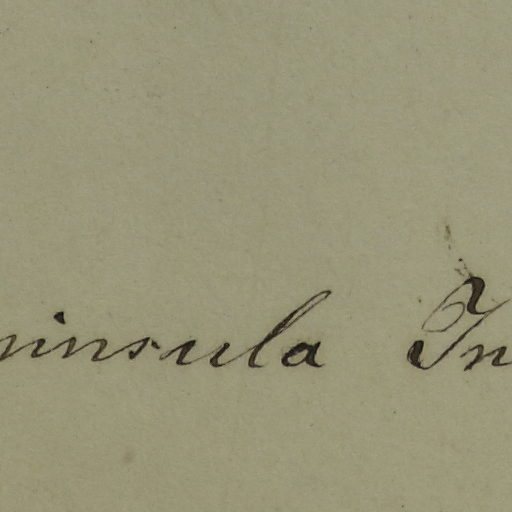 ninsula In